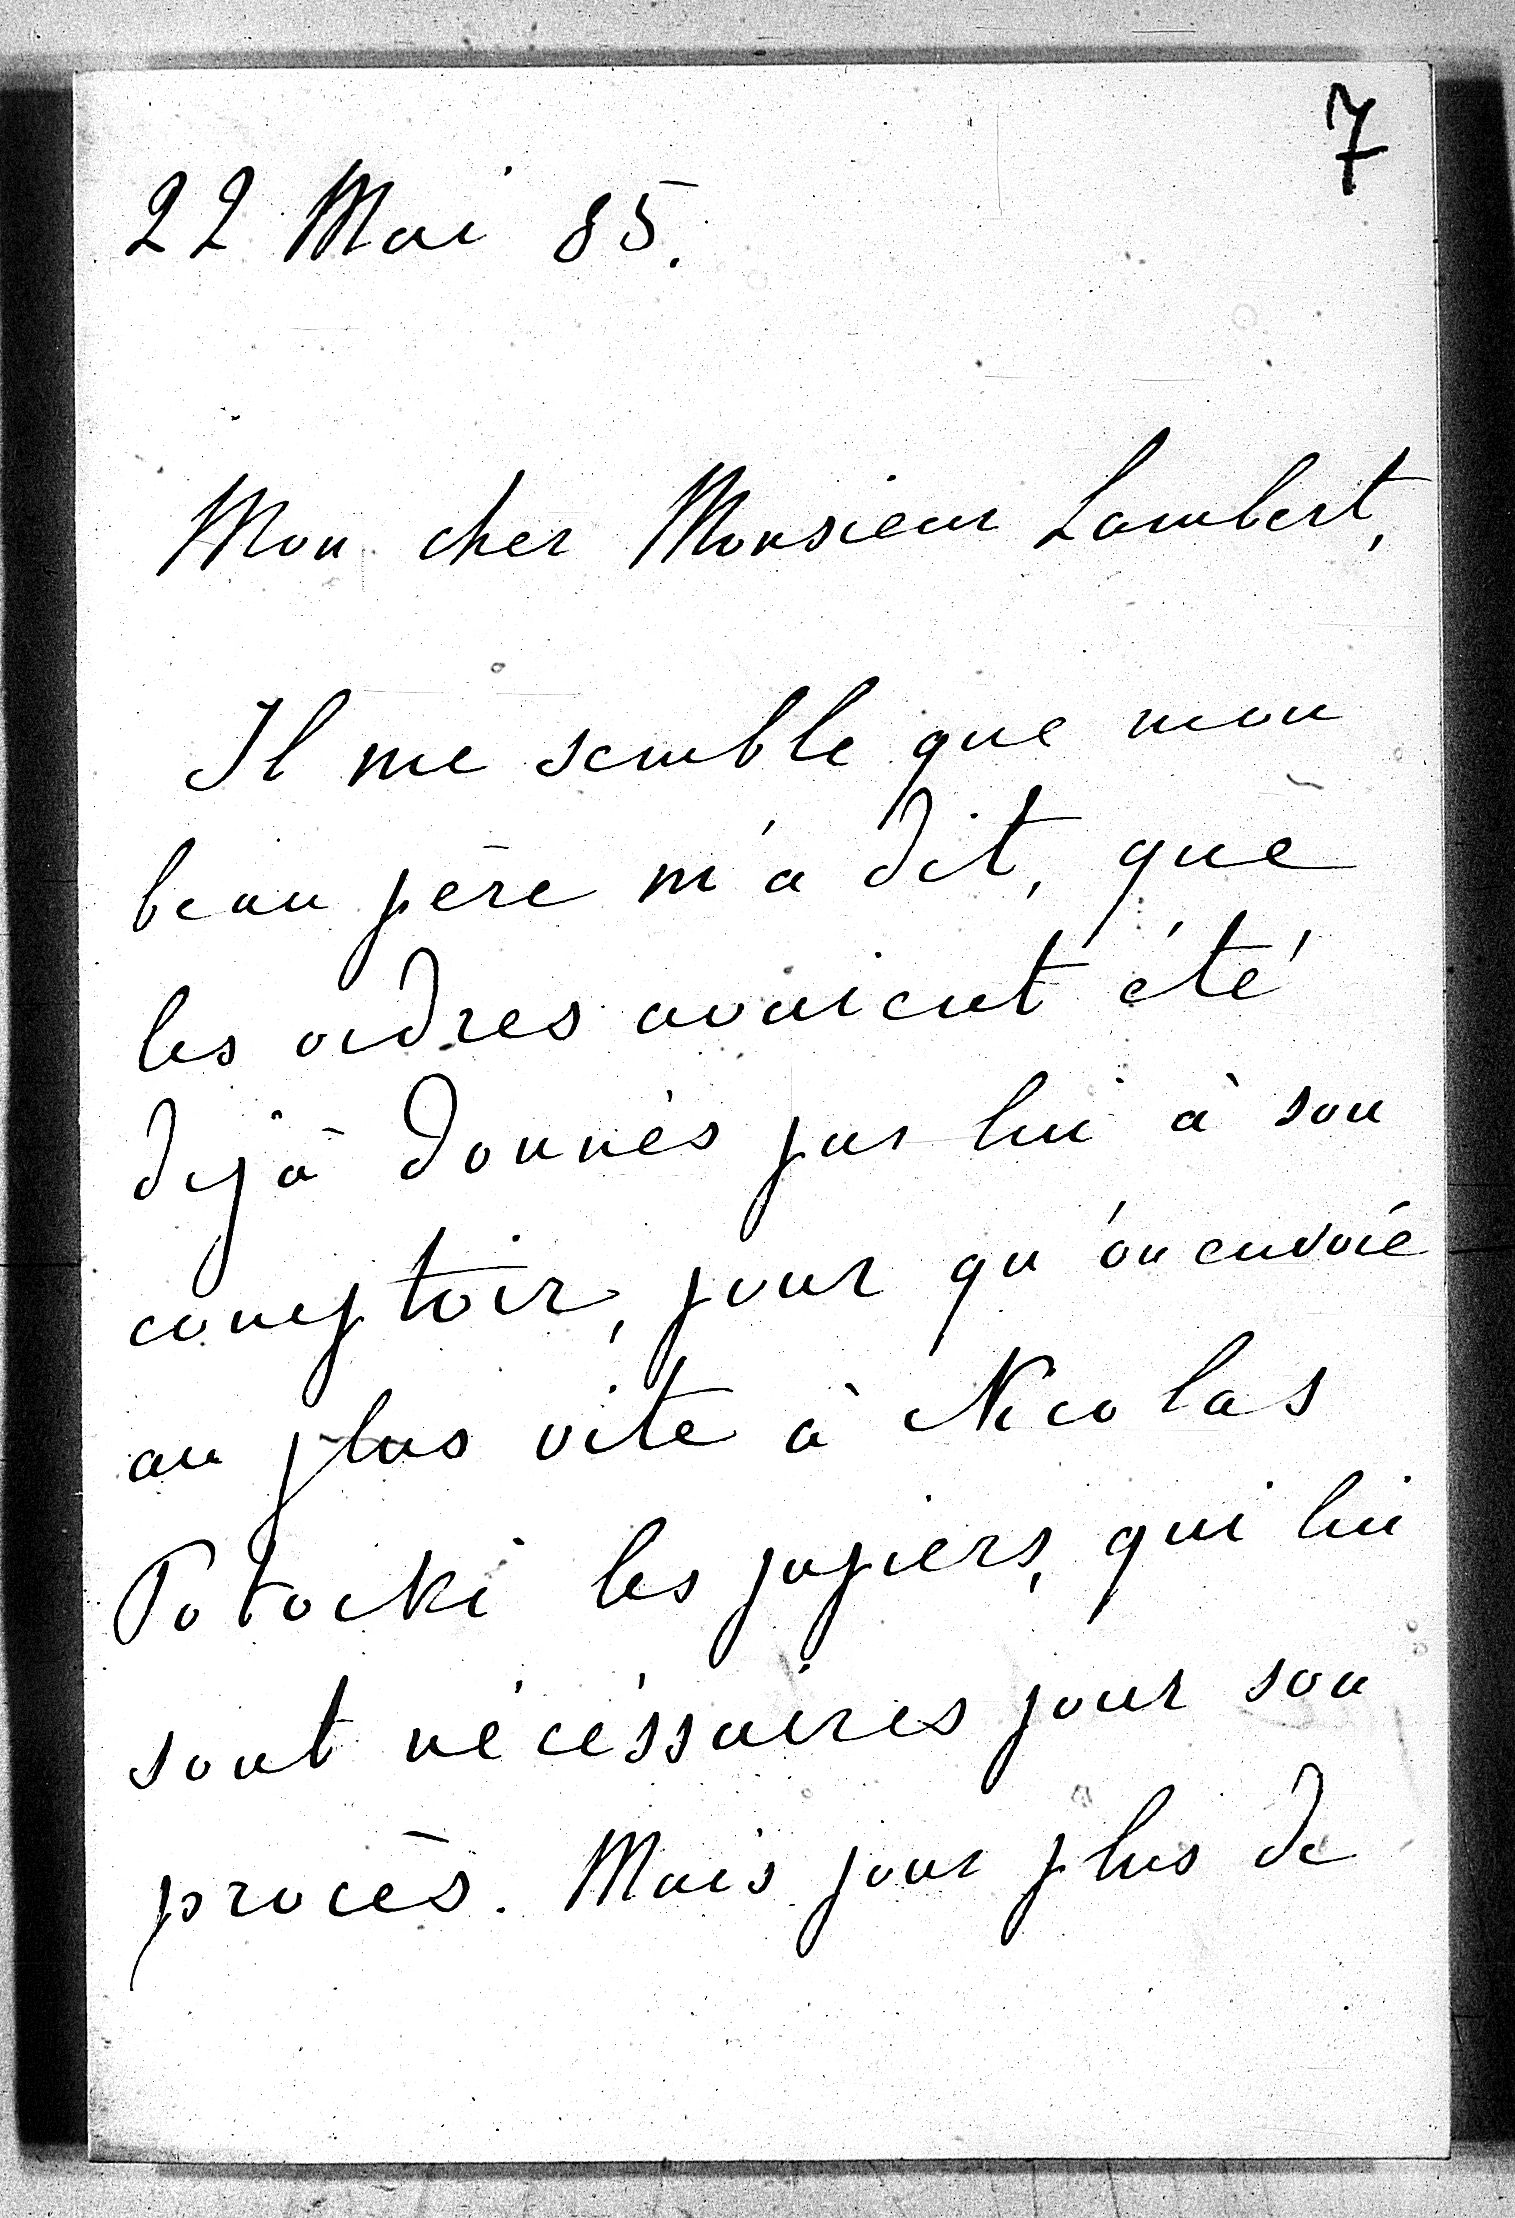 7
22 Mai 85.
Mon cher Monsieur Lambert,
Il me semble que mon
beau père m'a dit, que
les ordres avaient été
déjà donnés par lui à son
comptoir, pour qu'on envoie
au plus vite à Nicolas
Potocki les papiers, qui lui
sont nécéssaires pour son
procès. Mais pour plus de